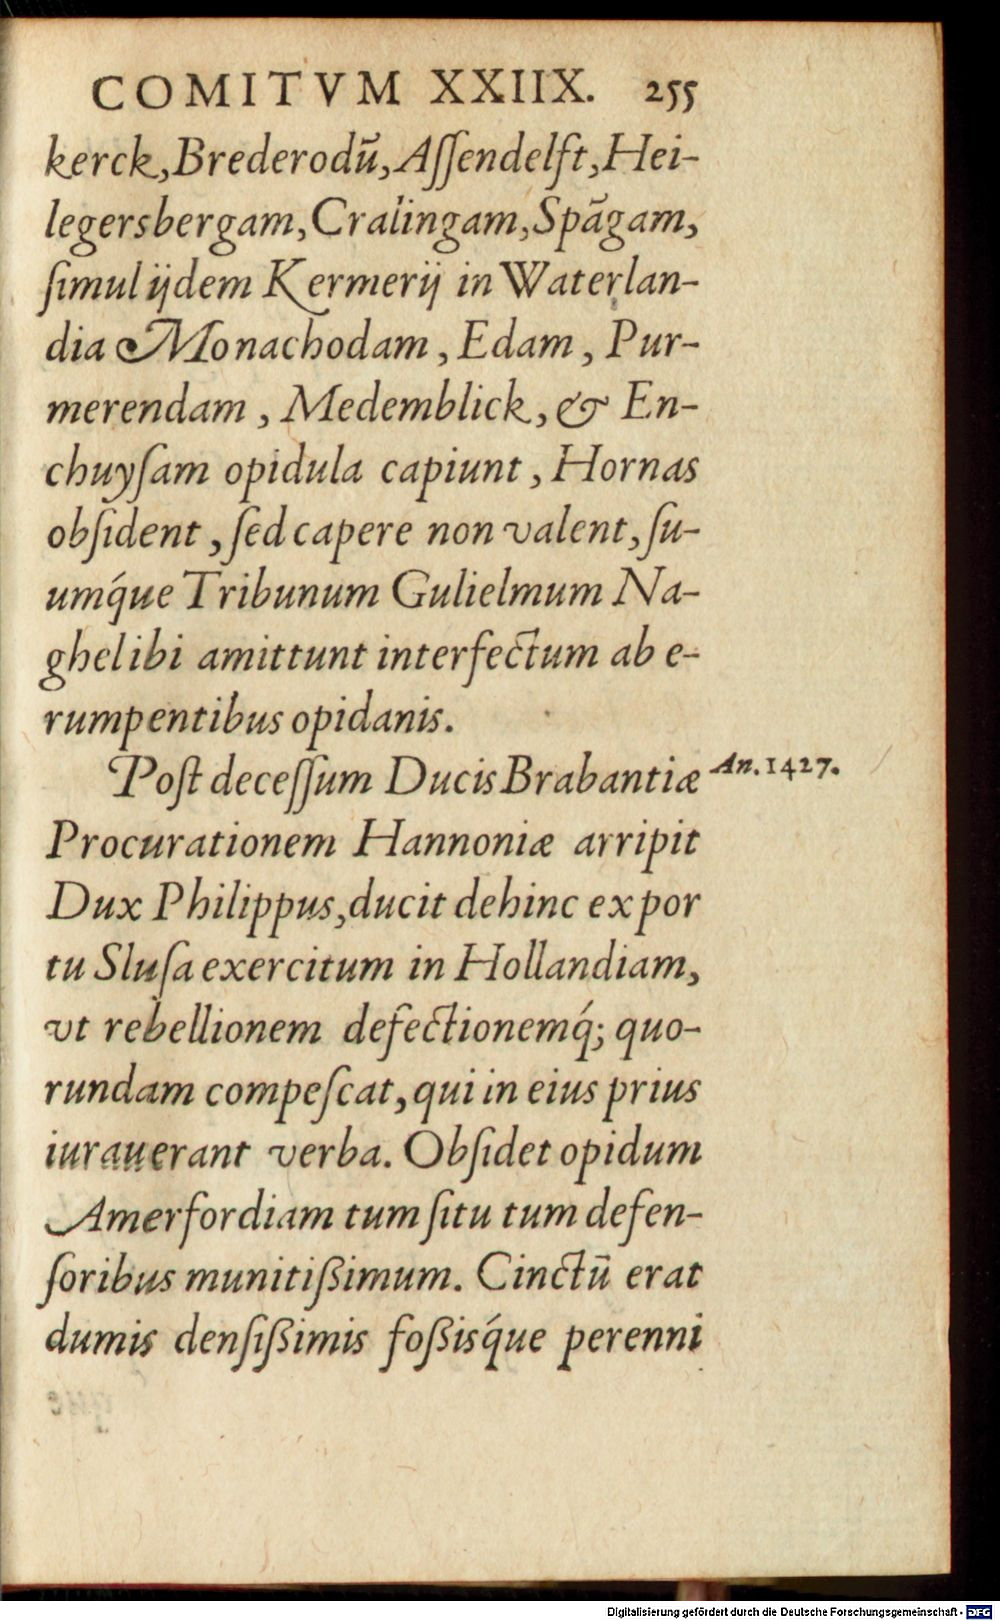 COMITVM XXIIX. 255
kerck, Brederodū, Aſſendelft, Hei-
legersbergam, Cralingam, Spāgam,
ſimul ijdem Kermerij in Waterlan-
dia Monachodam, Edam, Pur-
merendam, Medemblick, & En-
chuyſam opidula capiunt, Hornas
obſident, ſed capere non valent, ſu-
umq́ue Tribunum Gulielmum Na-
ghel ibi amittunt interfectum ab e-
rumpentibus opidanis.
Poſt deceſſum Ducis Brabantiæ An. 1427.
Procurationem Hannoniæ arripit
Dux Philippus, ducit dehinc ex por
tu Sluſa exercitum in Hollandiam,
vt rebellionem defectionemq́; quo-
rundam compeſcat, qui in eius prius
iurauerant verba. Obſidet opidum
Amerfordiam tum ſitu tum defen-
ſoribus munitißimum. Cinctū erat
dumis denſißimis foßisq́ue perenni
Digitalisierung gefördert durch die Deutsche Forschungsgemeinschaft - DFG